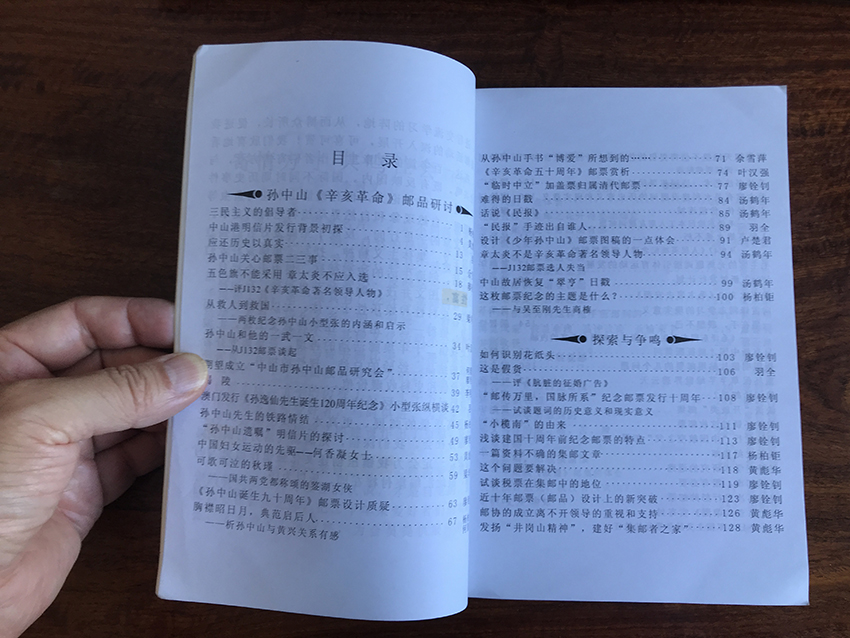 目 录
孙中山《辛亥革命》邮品研讨
三民主义的倡导者 1
中山港明信片发行背景初探 4
应还历史以真实 11
孙中山关心邮票二三事 15
五色旗不能采用 章太炎不应入选 18
——评J132《辛亥革命著名领导人物》
从救人到救国 29
——两枚纪念孙中山小型张的内涵和启示
孙中山和他的一武一文 34
——从J132邮票谈起
成立“中山市孙中山邮品研究会” 37
陵 39
澳门发行《孙逸仙先生诞生120周年纪念》小型张纵横谈 42
孙中山先生的铁路情结 45
“孙中山遗嘱”明信片的探讨 49
中国妇女运动的先驱——何香凝女士 53
可歌可泣的秋瑾 59
——国共两党都称颂的鉴湖女侠
《孙中山诞生九十周年》邮票设计质疑 63
胸襟昭日月，典范启后人 67
——析孙中山与黄兴关系有感
从孙中山手书“博爱”所想到的…… 71 余雪萍
《辛亥革命五十周年》邮票赏析 74 叶汉强
“临时中立”加盖票归属清代邮票 77 廖铨钊
难得的日戳 84 汤鹤年
话说《民报》 85 汤鹤年
“民报”手迹出自谁人 89 羽全
设计《少年孙中山》邮票图稿的一点体会 91 卢楚君
章太炎不是辛亥革命著名领导人物 94 汤鹤年
——J132邮票选人失当
中山故居恢复“翠亨”日戳 99 汤鹤年
这枚邮票纪念的主题是什么？ 100 杨柏钜
——与吴至刚先生商榷
探索与争鸣
如何识别花纸头 103 廖铨钊
这是假货 106 羽全
——评《肮脏的征婚广告》
“邮传万里，国脉所系”纪念邮票发行十周年 108 廖铨钊
——试谈题词的历史意义和现实意义
“小榄南”的由来 111 廖铨钊
浅谈建国十周年前纪念邮票的特点 113 廖铨钊
一篇资料不确的集邮文章 117 杨柏钜
这个问题要解决 118 黄彪华
试谈税票在集邮中的地位 119 廖铨钊
近十年邮票（邮品）设计上的新突破 123 廖铨钊
邮协的成立离不开领导的重视和支持 126 黄彪华
发扬“井岗山精神”，建好“集邮者之家” 128 黄彪华